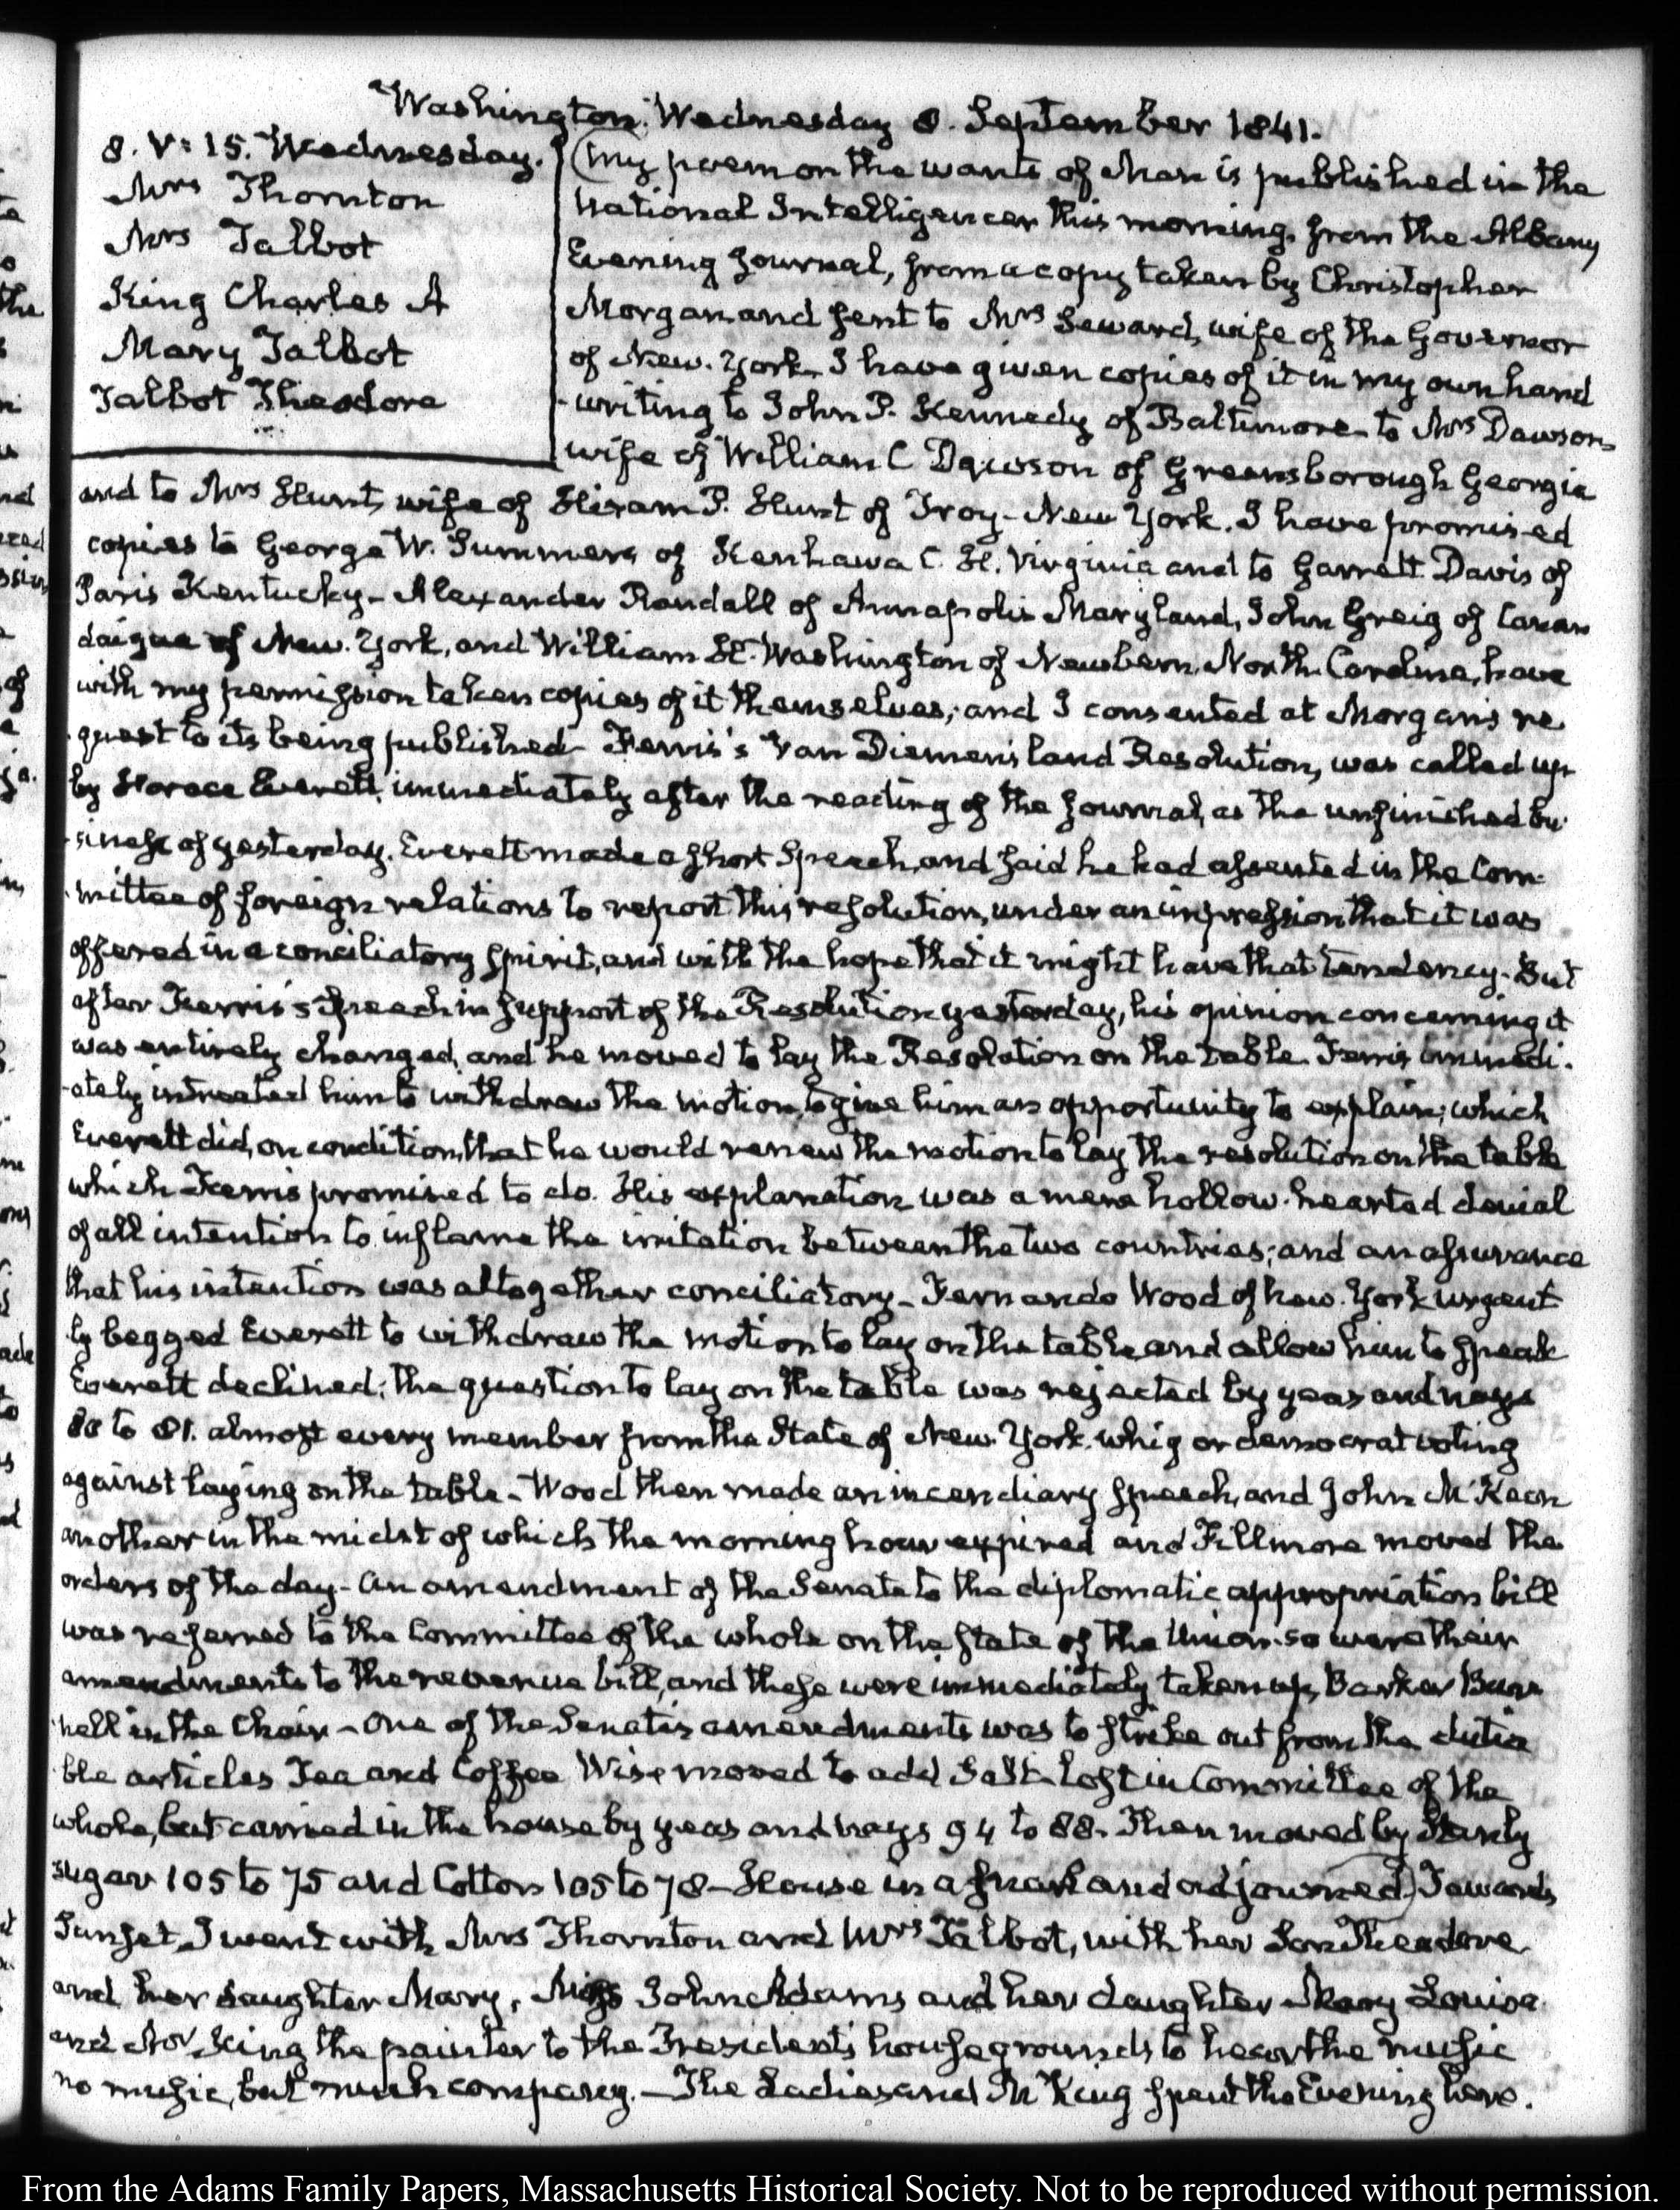 Washington. Wednesday 8. September 1841.
8. V: 15. Wednesday.
Mrs Thornton
Mrs Talbot
King Charles A
Mary Talbot
Talbot Theodore
(My poem on the wants of Man is published in the
National Intelligencer this morning, from the Albany
Evening Journal, from a copy taken by Christopher
Morgan and sent to Mrs Seward, wife of the Governor
of New-York. I have given copies of it in my own hand
-writing to John P. Kennedy of Baltimore— to Mrs Dawson,
wife of William C Dawson of Greensborough Georgia
and to Mrs Hunt, wife of Hiram P. Hunt of Troy— New York. I have promised
copies to George W. Summers of Kenhawa C. H. Virginia and to Garrett Davis of
Paris Kentucky— Alexander Randall of Annapolis Maryland, John Greig of Canan
daigua of New-York, and William H. Washington of Newbern North Carolina, have
with my permission taken copies of it themselves; and I consented at Morgan's re
-quest to its being published— Ferris's Van Diemen's land Resolution, was called up
by Horace Everett, immediately after the reading of the Journal, as the unfinished bu-
-siness of yesterday. Everett made a short Speech, and said he had assented in the Com-
-mittee of foreign relations to report this resolution, under an impression that it was
offered in a conciliatory spirit, and with the hope that it might have that tendency. But
after Ferris's speech in support of the Resolution yesterday, his opinion concerning it
was entirely changed, and he moved to lay the Resolution on the table. Ferris immedi-
-ately intreated him to withdraw the motion, to give him an opportunity to explain; which
Everett did, on condition, that he would renew the motion to lay the resolution on the table
which Ferris promised to do. His explanation was a mere hollow-hearted denial
of all intention to inflame the irritation between the two countries; and an assurance
that his intention was altogether conciliatory— Fernando Wood of New-York urgent
ly begged Everett to withdraw the motion to lay on the table and allow him to speak
Everett declined; the question to lay on the table was rejected by yeas and nays
80 to 81. almost every member from the State of New-York, whig or democrat voting
against laying on the table— Wood then made an incendiary speech, and John McKeon
another in the midst of which the morning hour expired and Fillmore moved the
orders of the day— An amendment of the Senate to the diplomatic appropriation bill
was referred to the Committee of the whole on the state of the Union. so were their
amendments to the revenue bill, and these were immediately taken up, Barker Burn
-nell in the Chair— One of the Senate's amendments was to strike out from the dutia
-ble articles Tea and Coffee Wise moved to add Salt— lost in Committee of the
whole, but carried in the house by yeas and nays 94 to 88. Then moved by Stanly
sugar 105 to 75 and Cotton 105 to 78— House in a snarl and adjourned) Towards
Sunset, I went with Mrs Thornton and Mrs Talbot, with her Son Theodore
and her daughter Mary, Mrs John Adams and her daughter Mary Louisa
and Mr King the painter to the President's house grounds to hear the music
no music, but much company.— The Ladies and Mr King spent the Evening here.
From the Adams Family Papers, Massachusetts Historical Society. Not to be reproduced without permission.